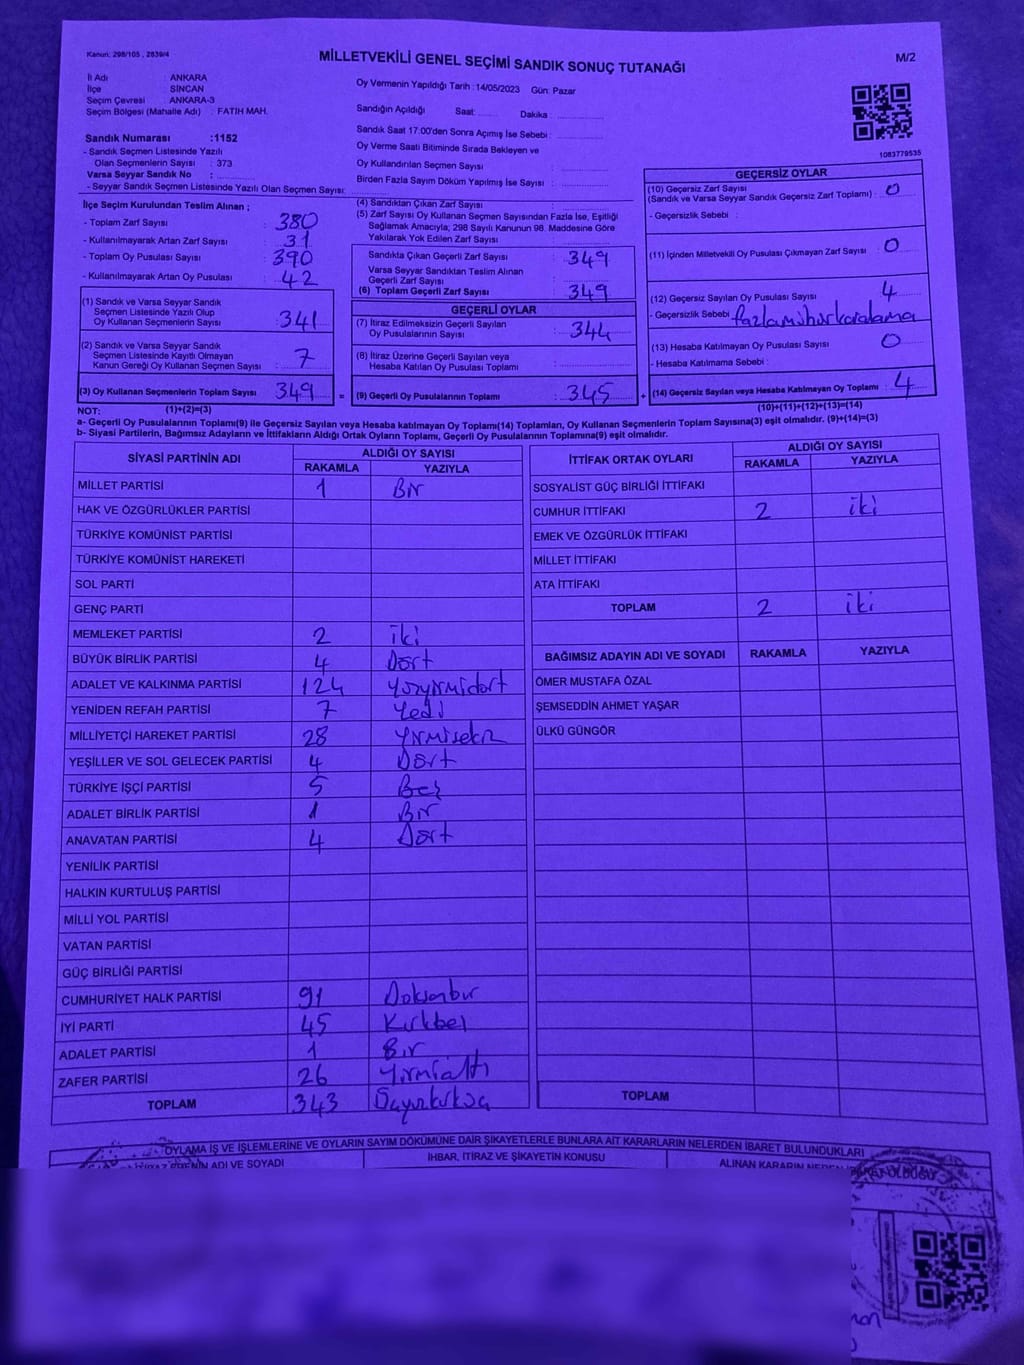 Kanun: 298/105 , 2839/4
MİLLETVEKİLİ GENEL SEÇİMİ SANDIK SONUÇ TUTANAĞI
M/2
İl Adı : ANKARA
İlçe : SİNCAN
Seçim Çevresi : ANKARA-3
Seçim Bölgesi (Mahalle Adı) : FATİH MAH.
Sandık Numarası :1152
- Sandık Seçmen Listesinde Yazılı
Olan Seçmenlerin Sayısı : 373
Varsa Seyyar Sandık No :
- Seyyar Sandık Seçmen Listesinde Yazılı Olan Seçmen Sayısı:
Oy Vermenin Yapıldığı Tarih : 14/05/2023 Gün: Pazar
Sandığın Açıldığı Saat: Dakika :
Sandık Saat 17:00'den Sonra Açımış İse Sebebi :
Oy Verme Saati Bitiminde Sırada Bekleyen ve
Oy Kullandırılan Seçmen Sayısı :
Birden Fazla Sayım Döküm Yapılmış İse Sayısı :
1083779535
İlçe Seçim Kurulundan Teslim Alınan ;
- Toplam Zarf Sayısı : 380
- Kullanılmayarak Artan Zarf Sayısı : 31
- Toplam Oy Pusulası Sayısı : 390
- Kullanılmayarak Artan Oy Pusulası : 42
(1) Sandık ve Varsa Seyyar Sandık
Seçmen Listesinde Yazılı Olup
Oy Kullanan Seçmenlerin Sayısı : 341
(2) Sandık ve Varsa Seyyar Sandık
Seçmen Listesinde Kayıtlı Olmayan
Kanun Gereği Oy Kullanan Seçmen Sayısı : 7
(3) Oy Kullanan Seçmenlerin Toplam Sayısı : 349 =
(4) Sandıktan Çıkan Zarf Sayısı :
(5) Zarf Sayısı Oy Kullanan Seçmen Sayısından Fazla İse, Eşitliği
Sağlamak Amacıyla; 298 Sayılı Kanunun 98. Maddesine Göre
Yakılarak Yok Edilen Zarf Sayısı :
Sandıkta Çıkan Geçerli Zarf Sayısı : 349
Varsa Seyyar Sandıktan Teslim Alınan
Geçerli Zarf Sayısı :
(6) Toplam Geçerli Zarf Sayısı : 349
GEÇERLİ OYLAR
(7) İtiraz Edilmeksizin Geçerli Sayılan
Oy Pusulalarının Sayısı : 344
(8) İtiraz Üzerine Geçerli Sayılan veya
Hesaba Katılan Oy Pusulası Toplamı :
(9) Geçerli Oy Pusulalarının Toplamı : 345 +
GEÇERSİZ OYLAR
(10) Geçersiz Zarf Sayısı
(Sandık ve Varsa Seyyar Sandık Geçersiz Zarf Toplamı) : 0
- Geçersizlik Sebebi :
(11) İçinden Milletvekili Oy Pusulası Çıkmayan Zarf Sayısı : 0
(12) Geçersiz Sayılan Oy Pusulası Sayısı : 4
- Geçersizlik Sebebi : fazlamühürkaralama
(13) Hesaba Katılmayan Oy Pusulası Sayısı : 0
- Hesaba Katılmama Sebebi :
(14) Geçersiz Sayılan veya Hesaba Katılmayan Oy Toplamı : 4
NOT: (1)+(2)=(3)
(10)+(11)+(12)+(13)=(14)
a- Geçerli Oy Pusulalarının Toplamı(9) ile Geçersiz Sayılan veya Hesaba katılmayan Oy Toplamı(14) Toplamları, Oy Kullanan Seçmenlerin Toplam Sayısına(3) eşit olmalıdır. (9)+(14)=(3)
b- Siyasi Partilerin, Bağımsız Adayların ve İttifakların Aldığı Ortak Oyların Toplamı, Geçerli Oy Pusulalarının Toplamına(9) eşit olmalıdır.
SİYASİ PARTİNİN ADI ALDIĞI OY SAYISI
RAKAMLA YAZIYLA
MİLLET PARTİSİ 1 Bir
HAK VE ÖZGÜRLÜKLER PARTİSİ
TÜRKİYE KOMÜNİST PARTİSİ
TÜRKİYE KOMÜNİST HAREKETİ
SOL PARTİ
GENÇ PARTİ
MEMLEKET PARTİSİ 2 iki
BÜYÜK BİRLİK PARTİSİ 4 Dört
ADALET VE KALKINMA PARTİSİ 124 Yüzyirmidört
YENİDEN REFAH PARTİSİ 7 Yedi
MİLLİYETÇİ HAREKET PARTİSİ 28 Yirmisekiz
YEŞİLLER VE SOL GELECEK PARTİSİ 4 Dört
TÜRKİYE İŞÇİ PARTİSİ 5 Beş
ADALET BİRLİK PARTİSİ 1 Bir
ANAVATAN PARTİSİ 4 Dört
YENİLİK PARTİSİ
HALKIN KURTULUŞ PARTİSİ
MİLLİ YOL PARTİSİ
VATAN PARTİSİ
GÜÇ BİRLİĞİ PARTİSİ
CUMHURİYET HALK PARTİSİ 91 Doksanbir
İYİ PARTİ 45 Kırkbeş
ADALET PARTİSİ 1 Bir
ZAFER PARTİSİ 26 Yirmialtı
TOPLAM 343
İTTİFAK ORTAK OYLARI ALDIĞI OY SAYISI
RAKAMLA YAZIYLA
SOSYALİST GÜÇ BİRLİĞİ İTTİFAKI
CUMHUR İTTİFAKI 2 iki
EMEK VE ÖZGÜRLÜK İTTİFAKI
MİLLET İTTİFAKI
ATA İTTİFAKI
TOPLAM 2 iki
BAĞIMSIZ ADAYIN ADI VE SOYADI RAKAMLA YAZIYLA
ÖMER MUSTAFA ÖZAL
ŞEMSEDDİN AHMET YAŞAR
ÜLKÜ GÜNGÖR
TOPLAM
OYLAMA İŞ VE İŞLEMLERİNE VE OYLARIN SAYIM DÖKÜMÜNE DAİR ŞİKAYETLERLE BUNLARA AİT KARARLARIN NELERDEN İBARET BULUNDUKLARI
ADI VE SOYADI İHBAR, İTİRAZ VE ŞİKAYETİN KONUSU ALINAN KARARIN